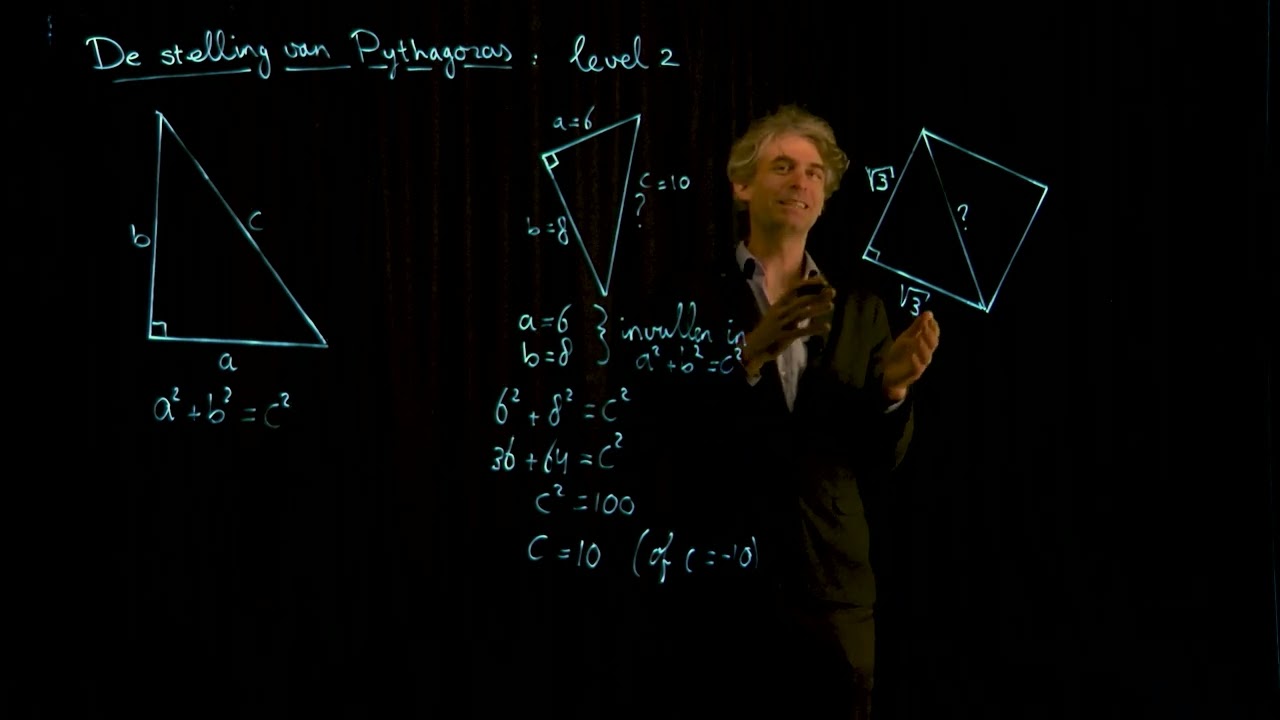 De stelling van Pythagoras : level 2
b
c
a
a² + b² = c²
a = 6
c = 10
?
b = 8
a = 6 } invullen in
b = 8 } a² + b² = c²
6² + 8² = c²
36 + 64 = c²
c² = 100
c = 10 (of c = -10)
√3
?
√3